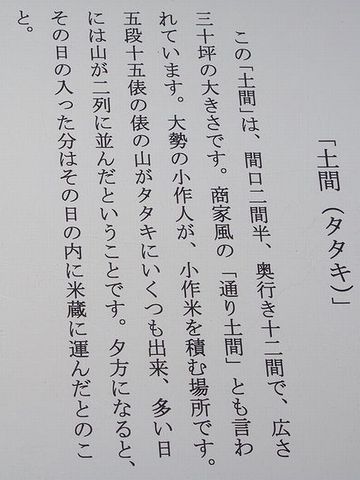 「土間（タタキ）」
この「土間」は、間口二間半、奥行き十二間で、広さ
三十坪の大きさです。商家風の「通り土間」とも言わ
れています。大勢の小作人が、小作米を積む場所です。
五段十五俵の俵の山がタタキにいくつも出来、多い日
には山が二列に並んだということです。夕方になると、
その日の入った分はその日の内に米蔵に運んだとのこ
と。